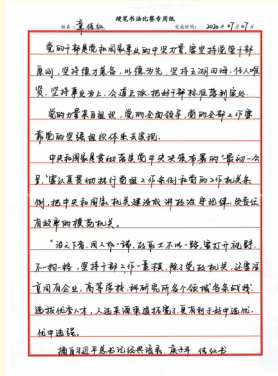 硬笔书法比赛专用纸
姓名：章佳红 完成时间：2020年07月07日
党的干部是党和国家事业的中坚力量，要坚持党管干部
原则，坚持德才兼备、以德为先，坚持五湖四海、任人唯
贤，坚持事业为上、公道正派，把好干部标准落到实处。
党的力量来自组织，党的全面领导、党的全部工作要
靠党的坚强组织体系去实现。
中央和国家机关是贯彻落实党中央决策部署的"最初一公
里"，要认真贯彻执行党组工作条例和党的工作机关条
例，把中央和国家机关建设成讲政治、守纪律、负责任、
有效率的模范机关。
"治天下者，用人非止一端，故取士不以一路。"要打开视野、
不拘一格，坚持干部工作一盘棋，除了党政机关，还要注
意国有企业、高等学校、科研院所各个领域各条战线
选拔优秀人才，人选来源渠道拓宽了，更有利于好中选优、
优中选强。
摘自习近平总书记经典语录 庚子年 佳红书